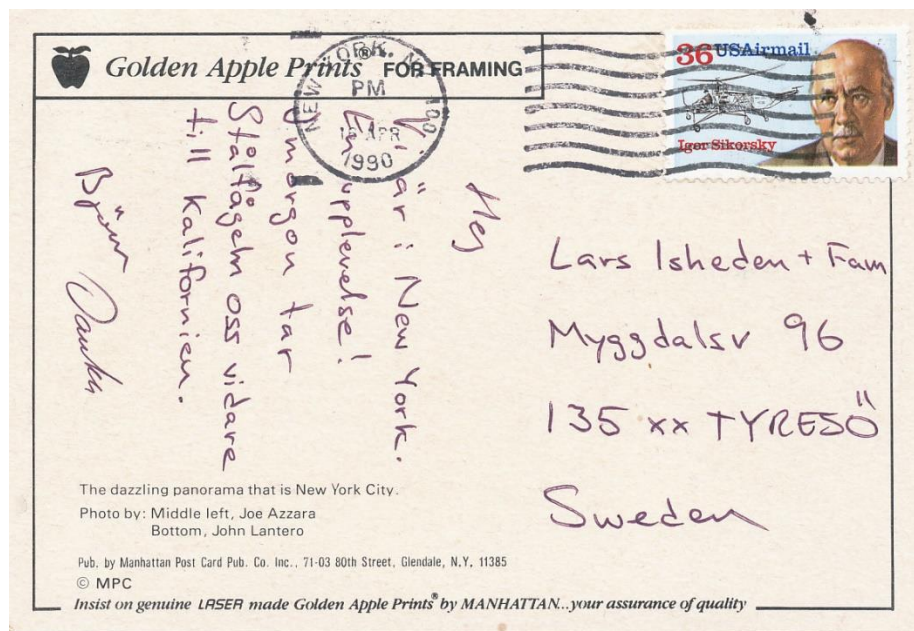 Golden Apple Prints® FOR FRAMING
NEW YORK, N.Y. 100
PM
APR
1990
36 USAirmail
Igor Sikorsky
Hej
Vi är i New York.
En upplevelse!
I morgon tar
Stålfågeln oss vidare
till Kalifornien.
Björn
Lars Isheden + Fam
Myggdalsv 96
135 xx TYRESÖ
Sweden
The dazzling panorama that is New York City.
Photo by: Middle left, Joe Azzara
Bottom, John Lantero
Pub. by Manhattan Post Card Pub. Co. Inc., 71-03 80th Street, Glendale, N,Y, 11385
© MPC
Insist on genuine LASER made Golden Apple Prints® by MANHATTAN...your assurance of quality